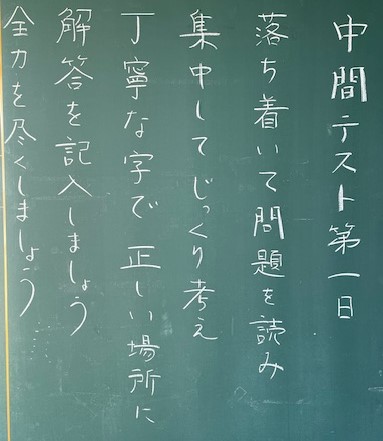 中間テスト第一日
落ち着いて問題を読み
集中してじっくり考え
丁寧な字で 正しい場所に
解答を記入しましょう
全力を尽くしましょう